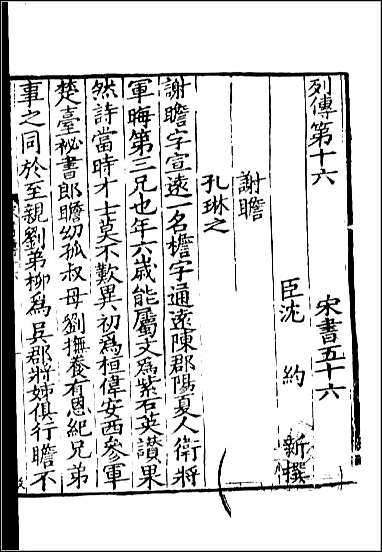 列傳第十六 宋書五十六
臣沈 約 新撰
謝瞻
孔琳之
謝瞻字宣遠一名檐字通遠陳郡陽夏人衞將
軍晦第三兄也年六歲能屬文爲紫石英讃果
然詩當時才士莫不歎異初爲桓偉安西參軍
楚臺祕書郎瞻幼孤叔母劉撫養有恩紀兄弟
事之同於至親劉弟柳爲吳郡將姊俱行瞻不